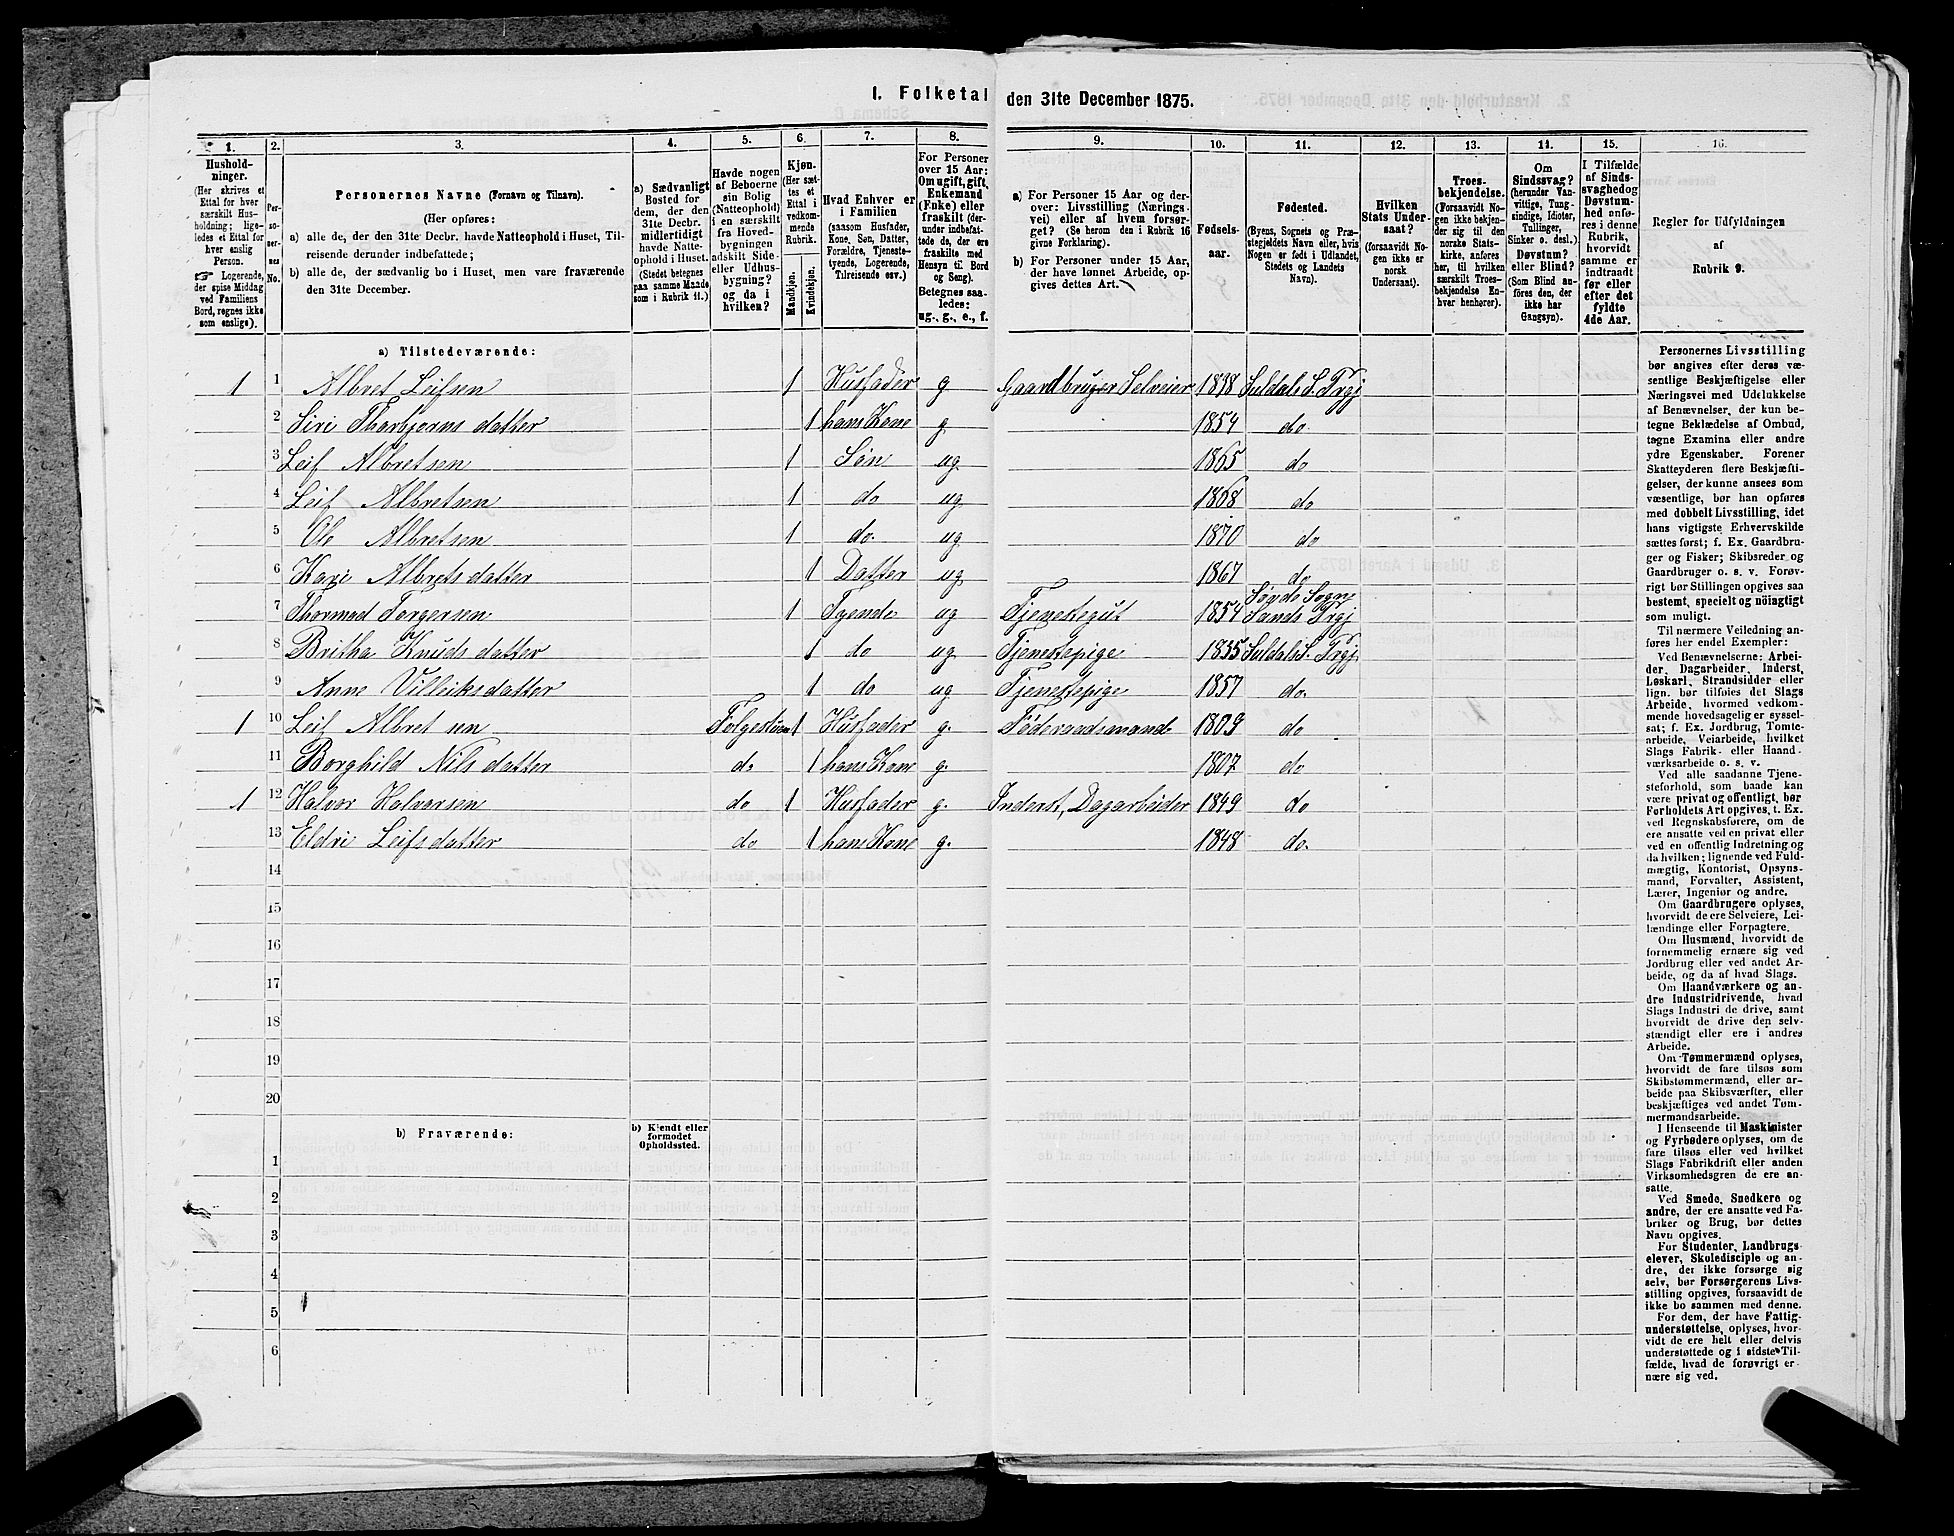 1. Folketal den 31te December 1875.
1. 2. 3. 4. 5. 6. 7. 8. 9. 10. 11. 12. 13. 14. 15. 16.
Hushold-
ninger.
(Her skrives et
Ettal for hver
særskilt Hus-
holdning; lige-
ledes et Ettal for
hver enslig
Person.
☞ Logerende,
der spise Middag
ved Familiens
Bord, regnes ikke
som enslige).
Per-
soner-
nes
No.
Personernes Navne (Fornavn og Tilnavn).
(Her opføres:
a) alle de, der den 31te Decbr. havde Natteophold i Huset, Til-
reisende derunder indbefattede;
b) alle de, der sædvanlig bo i Huset, men vare fraværende
den 31te December.
a) Sædvanligt
Bosted for
dem, der den
31te Decbr.
midlertidigt
havde Natte-
ophold i Huset.
(Stedet betegnes
paa samme Maade
som i Rubrik 11.)
Havde nogen
af Beboerne
sin Bolig
(Natteophold)
i en særskilt
fra Hoved-
bygningen
adskilt Side-
eller Udhus-
bygning?
og da i
hvilken?
Kjøn.
(Her sæt-
tes et
Ettal i
vedkom-
mende
Rubrik.
Mandkjøn.
Kvindekjøn.
Hvad Enhver er
i Familien
(saasom Husfader,
Kone, Søn, Datter,
Forældre, Tjeneste-
tyende, Logerende,
Tilreisende osv.)
For Personer
over 15 Aar:
Om ugift, gift,
Enkemand
(Enke) eller
fraskilt (der-
under indbefat-
tede de, der ere
fraskilte med
Hensyn til Bord
og Seng).
Betegnes saa-
ledes:
ug., g., e., f.
a) For Personer 15 Aar og der-
over: Livsstilling (Nærings-
vei) eller af hvem forsør-
get? (Se herom den i Rubrik 16
givne Forklaring).
b) For Personer under 15 Aar,
der have lønnet Arbeide, op-
gives dettes Art.
Fødsels-
aar.
Fødested.
(Byens, Sognets og Præ-
stegjeldets Navn eller, hvis
Nogen er født i Udlandet,
Stedets og Landets
Navn).
Hvilken
Stats Under-
saat?
(forsaavidt No-
gen ikke er
norsk
Undersaat).
Troes-
bekjendelse.
(Forsaavidt No-
gen ikke bekjen-
der sig til den
norske Stats-
kirke, anføres
her, til hvilken
særskilt Troes-
bekjendelse En-
hver henhører).
Om
Sindssvag?
(herunder Van-
vittige, Tung-
sindige, Idioter,
Tullinger,
Sinker o. desl.)
Døvstum?
eller Blind?
(Som Blind an-
føres den, der
ikke har
Gangsyn).
I Tilfælde
af Sinds-
svaghed og
Døvstum-
hed anfø-
res i denne
Rubrik,
hvorvidt
samme er
indtraadt
før eller
efter det
fyldte
4de Aar.
Regler for Udfyldningen
af
Rubrik 9.
a) Tilstedeværende:
1 1 Albret Leifsen 1 Husfader g Gaardbruger Selveier Suldals S. Prgj
2 Siri Thorbjørnsdatter 1 hans Kone g 1854 do
3 Leif Albretsen 1 Søn ug 1865 do
4 Leif Albretsen 1 do ug 1868 do
5 Ole Albretsen 1 do. ug 1870 do
6 Kari Albretsdatter 1 Datter ug 1867 do
7 Thormod Torgersen 1 Tyende ug Tjenestegut 1854 Sands Prgj
8 Britha Knudsdatter 1 do ug Tjenestepige 1855 Suldals S. Prgj
9 Anne Villeiksdatter 1 do ug Tjenestepige 1857 do.
1 10 Leif Albretsen 1 Husfader g. Føderaadsmand 1809 do
11 Borghild Nilsdatter do 1 hans Kone g. 1807 do
1 12 Halvor Halvorsen do 1 Husfader g. Inderst, Dagarbeider 1849 do
13 Eldri Leifsdatter do 1 hans Kone g. 1848 do.
14
15
16
17
18
19
20
b) Fraværende:
b) Kjendt eller
formodet
Opholdssted.
1
2
3
4
5
6
Personernes Livsstilling
bør angives efter deres væ-
sentlige Beskjæftigelse eller
Næringsvei med Udelukkelse
af Benævnelser, der kun be-
tegne Beklædelse af Ombud,
tagne Examina eller andre
ydre Egenskaber. Forener
Skatteyderen flere Beskjæfti-
gelser, der kunne ansees som
væsentlige, bør han opføres
med dobbelt Livsstilling, idet
hans vigtigste Erhvervskilde
sættes først; f. Ex. Gaardbru-
ger og Fisker; Skibsreder og
Gaardbruger o. s. v. Forøv-
rigt bør Stillingen opgives saa
bestemt, specielt og nöiagtigt
som muligt.
Til nærmere Veiledning an-
føres her endel Exempler:
Ved Benævnelserne: Arbei-
der, Dagarbeider, Inderst,
Løskarl, Strandsidder eller
lign. bør tilføies det Slags
Arbeide, hvormed vedkom-
mende hovedsagelig er syssel-
sat; f. Ex. Jordbrug, Tomte-
arbeide, Veiarbeide, hvilket
Slags Fabrik- eller Haand-
værksarbeide o. s. v.
Ved alle saadanne Tjene-
steforhold, som baade kan
være privat og offentligt, bør
Forholdets Art opgives, t. Ex.
ved Regnskabsførere, om de
ere ansatte ved en privat eller
ved en offentlig Indretning og
da hvilken; lignende ved Fuld-
mægtig, Kontorist, Opsyns-
mand, Forvalter, Assistent,
Lærer, Ingeniør og andre.
Om Gaardbrugere oplyses,
hvorvidt de ere Selveiere, Lei-
lændinge eller Forpagtere.
Om Husmænd, hvorvidt de
fornemmelig ernære sig ved
Jordbrug eller ved andet Ar-
beide, og da af hvad Slags.
Om Haandværkere og an-
dre Industridrivende, hvad
Slags Industri de drive, samt
hvorvidt de drive den selv-
stændigt eller ere i andres
Arbeide.
Om Tømmermænd oplyses,
hvorvidt de fare tilsøs som
Skibstømmermænd, eller ar-
beide paa Skibsværfter, eller
beskjæftiges ved andet Tøm-
mermandsarbeide.
I Henseende til Maskinister
og Fyrbødere oplyses, om de
fare tilsøs eller ved hvilket
Slags Fabrikdrift eller anden
Virksomhedsgren de ere an-
satte.
Ved Smede, Snedkere og
andre, der ere ansatte ved Fa-
briker og Brug, bør dettes
Navn opgives.
For Studenter, Landbrugs-
elever, Skoledisciple og an-
dre, der ikke forsørge sig
selv, bør Forsørgerens Livs-
stilling opgives, forsaavidt de
ikke bo sammen med denne.
For dem, der have Fattig-
understøttelse, oplyses, hvor-
vidt de ere helt eller delvis
understøttede og i sidste Til-
fælde, hvad de forøvrigt er-
nære sig ved.